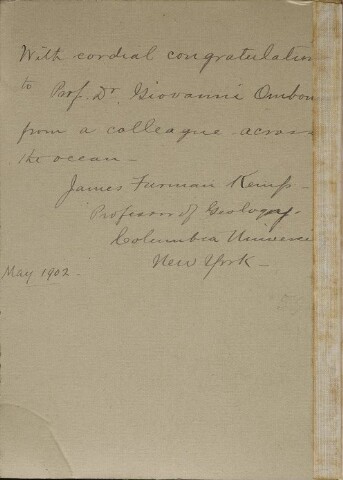 With cordial congratulation
to Prof. Dr. Giovanni Ombon
from a colleague across
the ocean —
James Furman Kemp —
Professor of Geology.
Columbia Universi
New York —
May 1902.